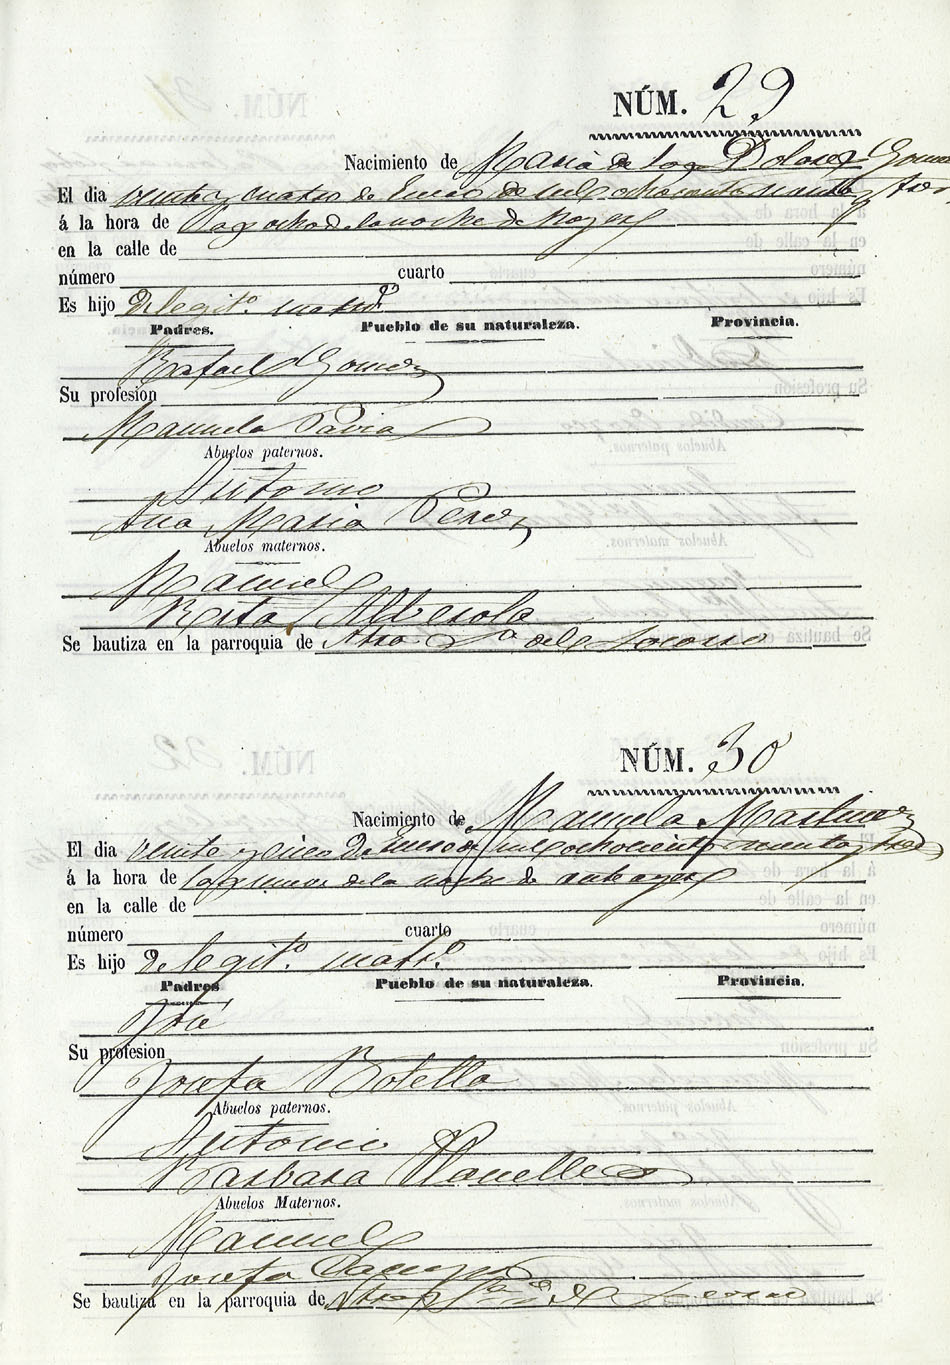 NÚM. 29
Nacimiento de Maria de los Dolores Gomez
El dia veinte y cuatro de Enero de mil ochocientos noventa y tres
á la hora de las ocho de la noche de
en la calle de
número cuarto
Es hijo de legit.º matr.º
Padres. Pueblo de su naturaleza. Provincia.
Rafael Gomez
Su profesion
Manuela Pavia
Abuelos paternos.
Antonio
Ana Maria Perez
Abuelos maternos.
Manuel
Rita Alberola
Se bautiza en la parroquia de Ntra Sra del Socorro
NÚM. 30
Nacimiento de Manuela Martinez
El dia veinte y cinco de Enero de mil ochocientos noventa y tres
á la hora de las nueve de la noche de
en la calle de
número cuarto
Es hijo de legit.º matr.º
Padres Pueblo de su naturaleza. Provincia.
José
Su profesion
Josefa Botella
Abuelos paternos.
Antonio
Barbara
Abuelos Maternos.
Manuel
Josefa
Se bautiza en la parroquia de Ntra Sra del Socorro